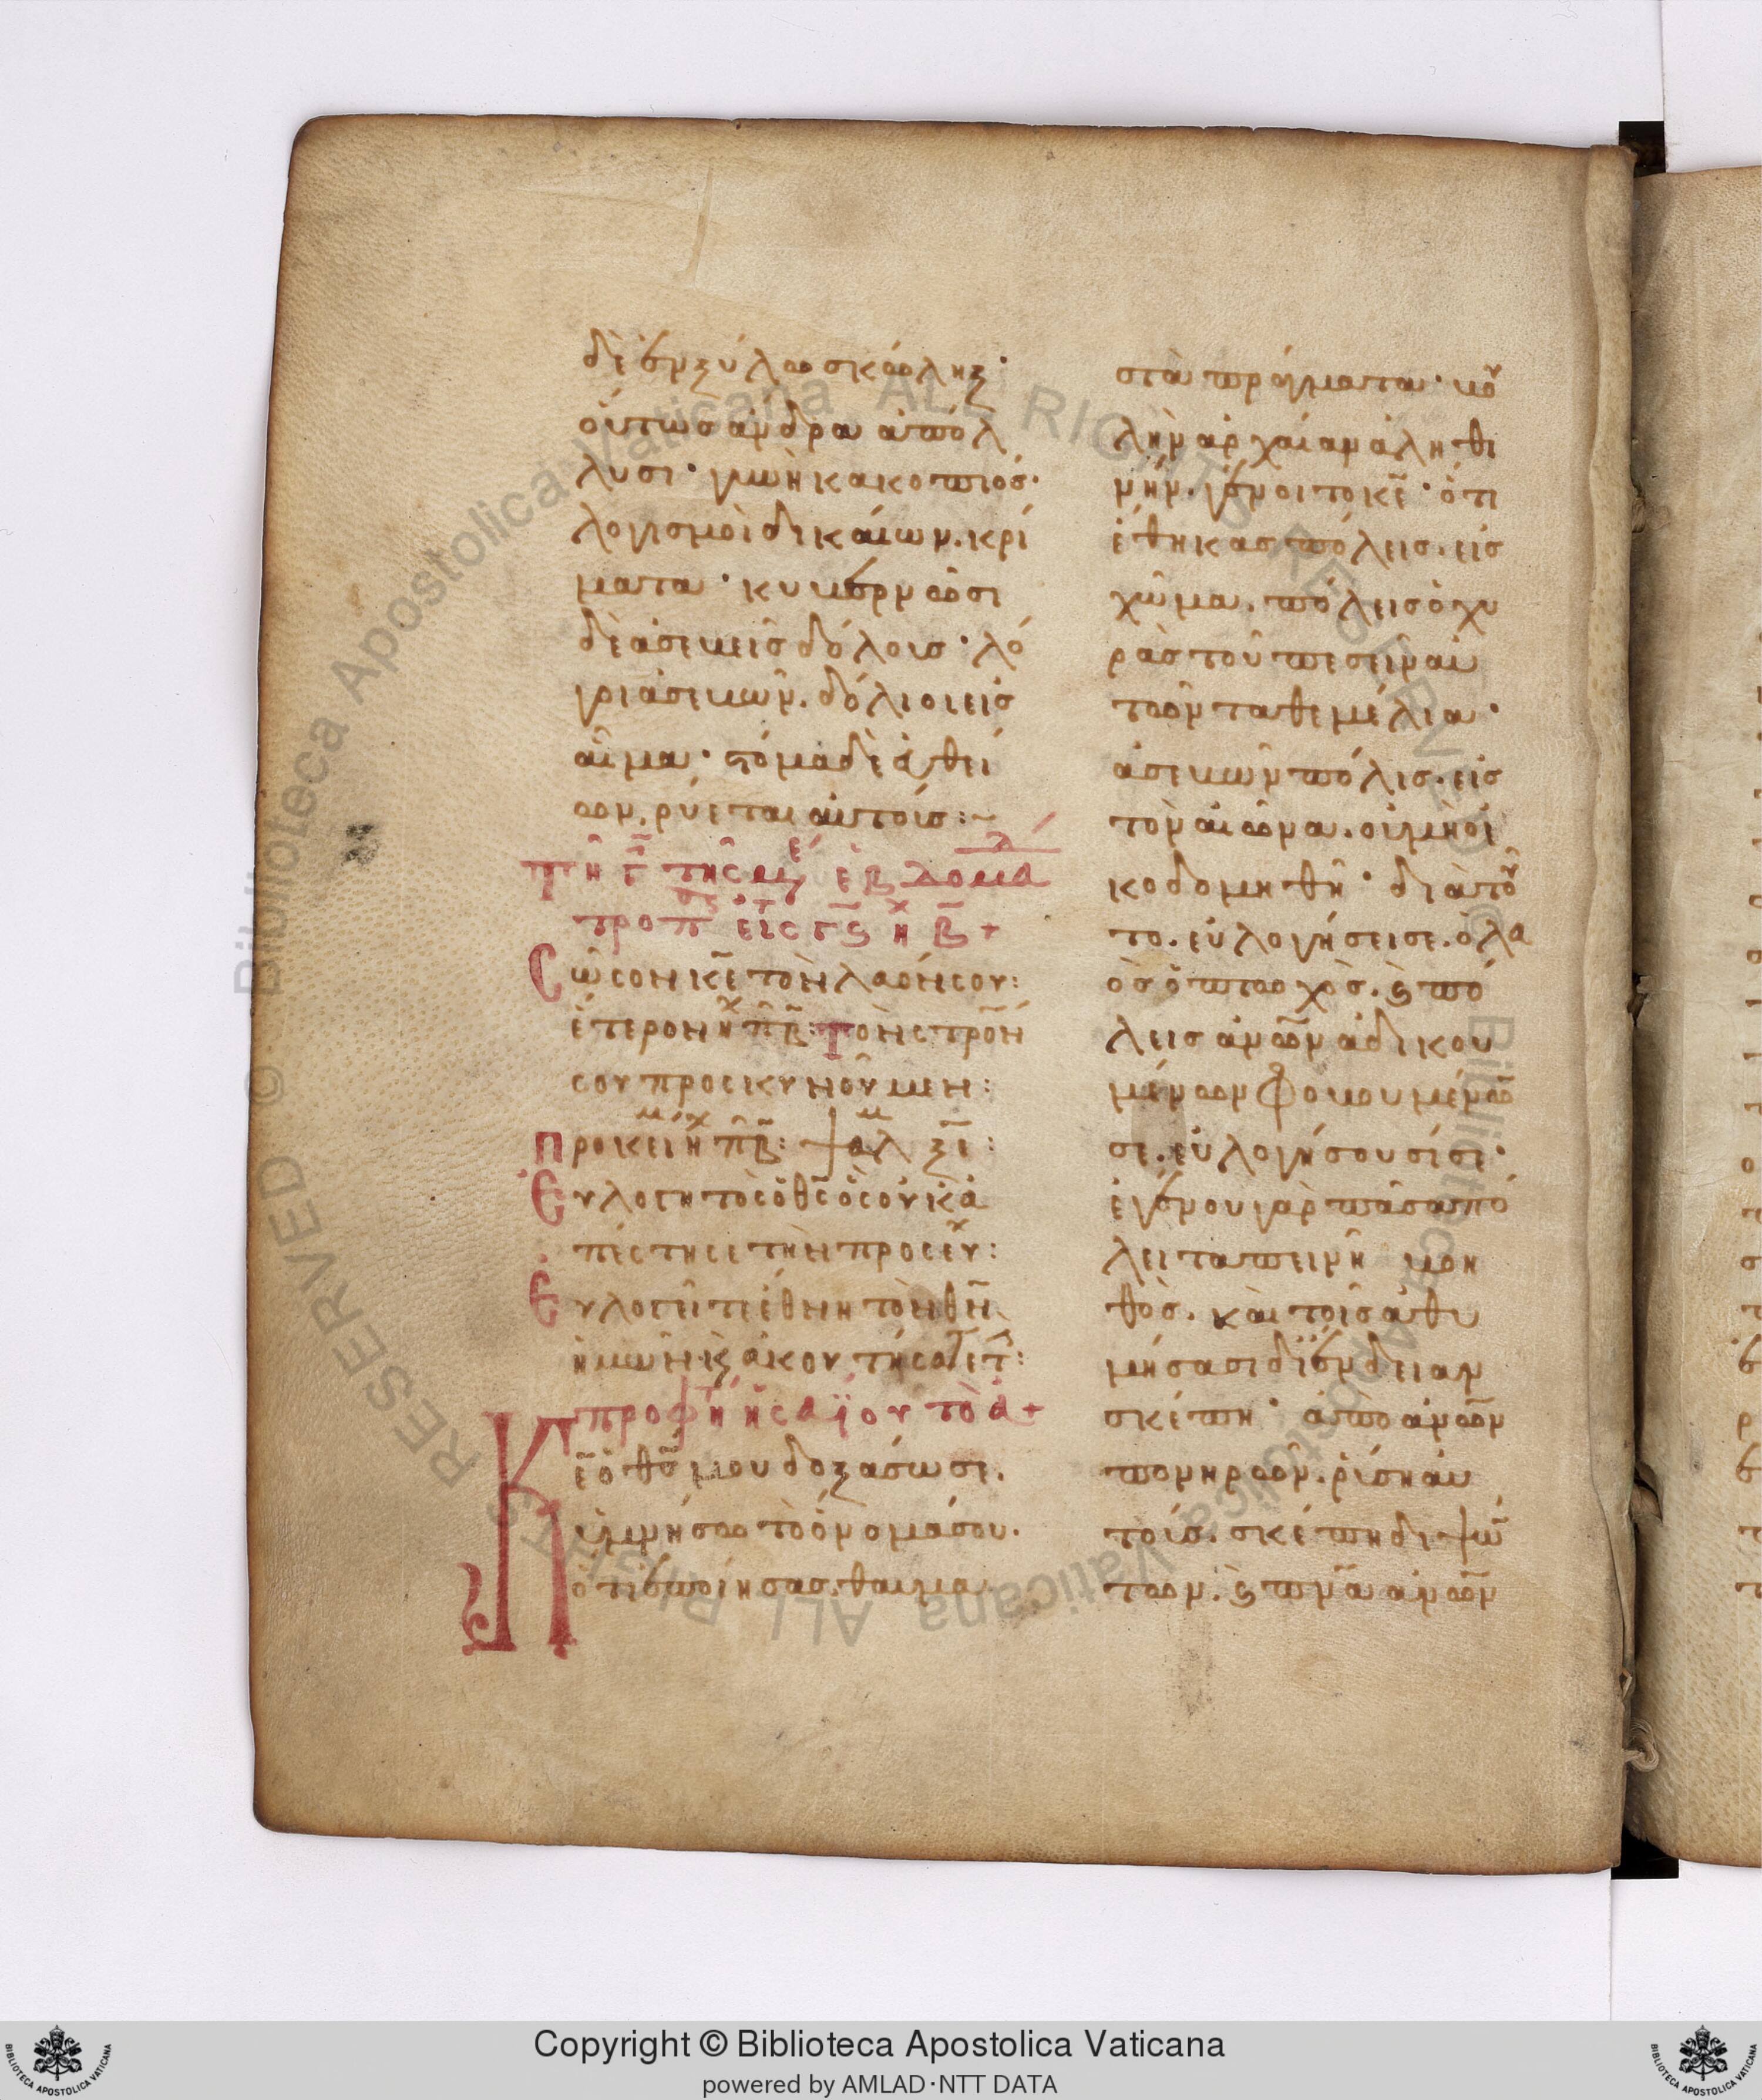 δὲ ἐν ξύλω σκώληξ·
οὕτωσ ἄνδρα ἀπόλ
λυσι· γυνὴ κακοποιόσ·
λογισμοὶ δικαίων. κρί
ματα· κυβερνῶσι
δὲ ἀσεβεῖσ δόλουσ· λό
γοι ἀσεβῶν. δόλιοι εἰσ
αἷμα· στόμα δὲ ὀρθεί
ων. ρύεται αὐτούσ:~
ἑβδομά
προπ εἰς τ ς ἦχ β +
Σῶσον κε τὸν λαόν σου:
ἕτερον ἦχ π β: Τὸν ς προν
σου προσκυνοῦμεν:
Προκεὶμ ἦχ π β: ψαλμ ξι:
Εὐλογητὸς ὁ θς ὃς οὐκ ἀ
πέστησε τὴν προσευχ:
Εὐλογεῖτε ἔθνη τὸν θν
ἡμῶν κ ἀκουτήσατε τ:
προφητ ἡσαΐου τὸ ἀ +
Κε ὁ θσ μου δοξάσω σε.
ὑμνήσω τὸ ὄνομά σου.
ὅτι ἐποίησασ. θαυμα
στὰ πράγματα· βου
λὴν ἀρχαίαν ἀληθι
νήν. γένοιτο κε· ὅτι
ἔθηκασ πόλεισ. εἰσ
χῶμα. πόλεισ ὀχυ
ρὰσ τοῦ πεσεῖν αὐ
τῶν τα θεμέλια·
ἀσεβῶν πόλισ. εἰσ
τὸν αἰῶνα. οὐ μὴ οἰ
κοδομηθῆ· διὰ τοῦ
το. εὐλογήσει σε. ὁ λα
ὸσ ὁ πτωχὸσ. ϗ πό
λεισ ἀνῶν ἀδικου
μένων φοβουμένω
σε. εὐλογήσουσί σε·
ἐγένου γὰρ πᾶσα πό
λει ταπεινῆ βοη
θὸσ. καὶ τοῖσ ἀθυ
μήσασι δι ἔνδειαν
σκέπη· ἀπὸ ἀνῶν
πονηρῶν. ρύση αὐ
τούσ. σκέπη διψώ
των. ϗ πνα ἀνῶν